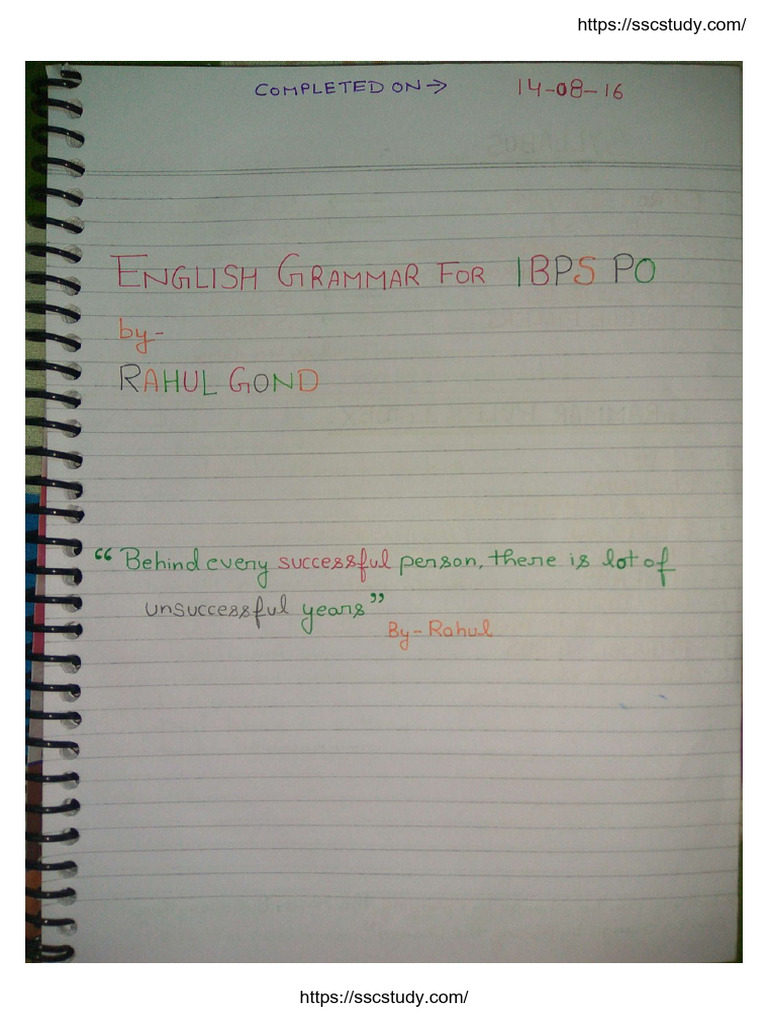 https://sscstudy.com/
COMPLETED ON → 14-08-16
ENGLISH GRAMMAR FOR IBPS PO
by-
RAHUL GOND
“ Behind every successful person, there is lot of
unsuccessful years ”
By- Rahul
https://sscstudy.com/